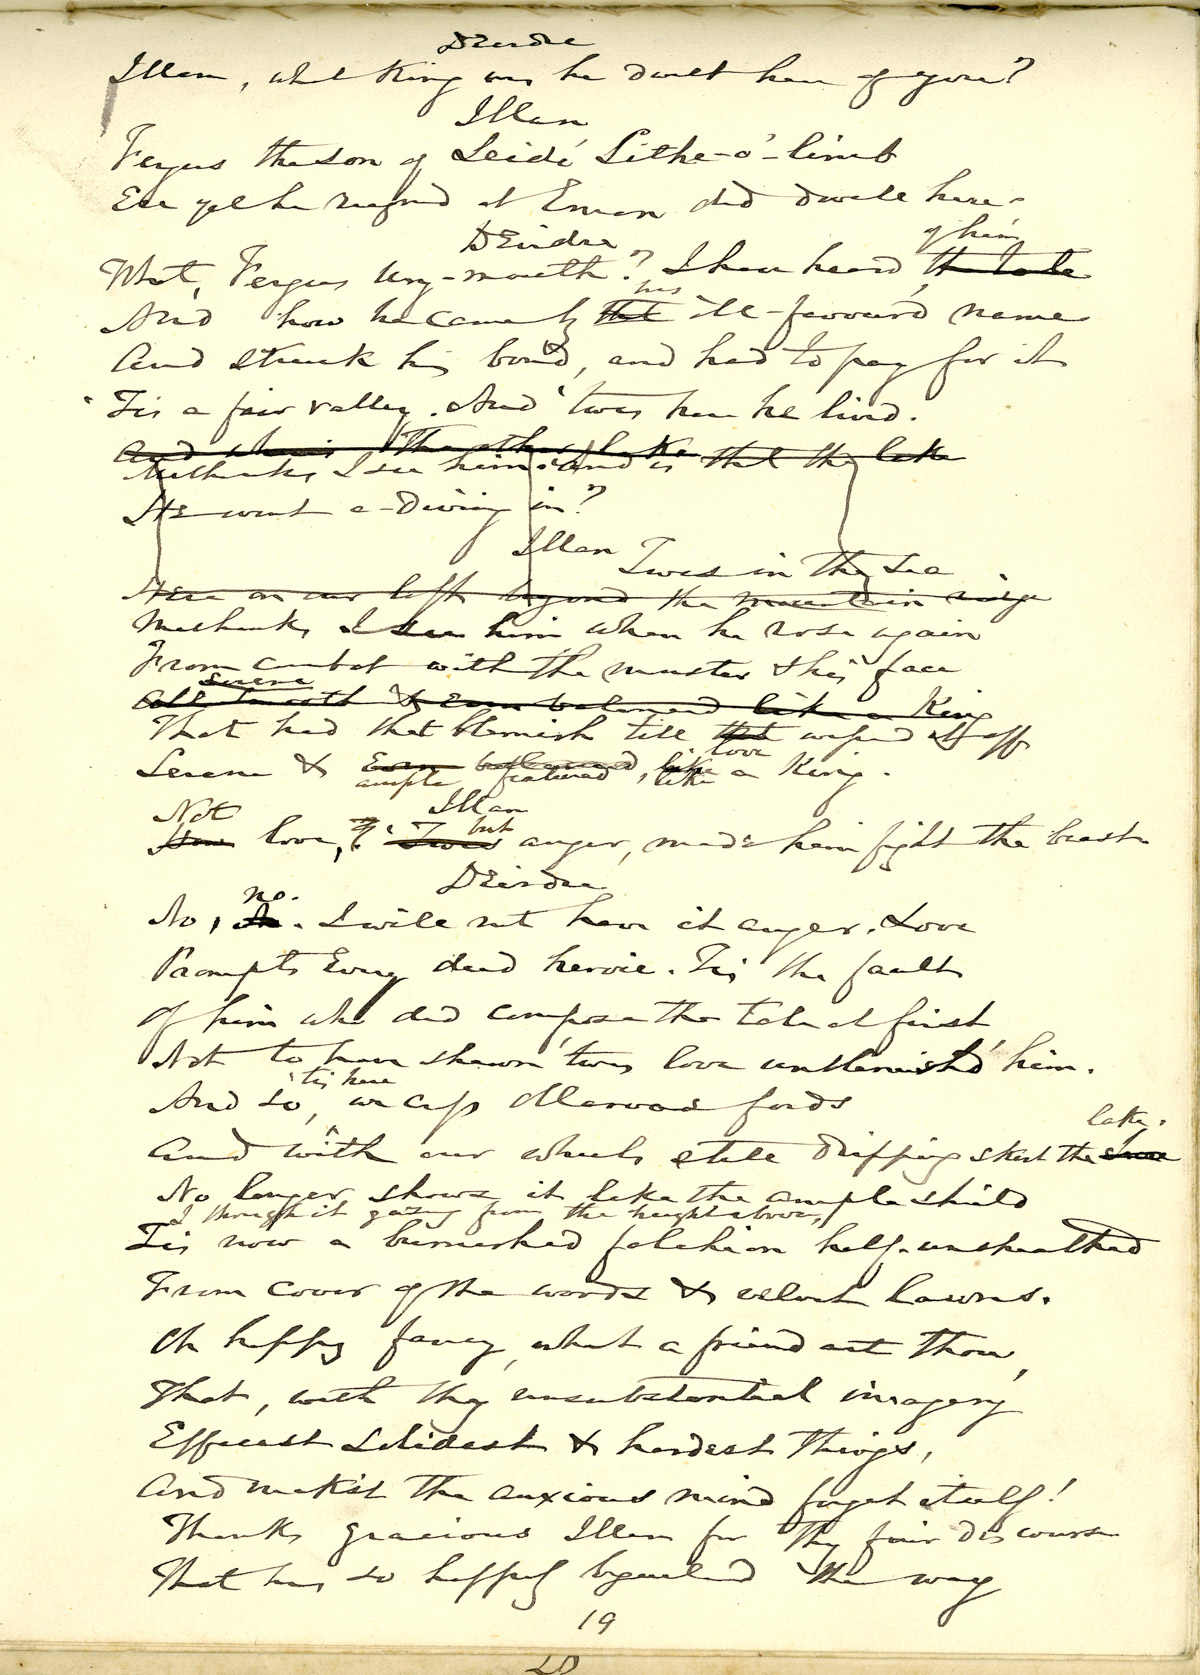 Deirdre
Illan, what King was he dwelt here of yore?
Illan
Fergus the son of Leidé Lithe-o'-limb
Ere yet he reigned at Eman did dwell here.
Deirdre
of him
What, Fergus Wry-mouth? I have heard the tale
his
And how he came by that ill-favour'd name
And struck his bond, and had to pay for it
'Tis a fair valley. And 'twas here he lived.
And where's the other lake
Methinks I see him: and is that the lake
He went a-diving in?
Illan
'Twas in the sea
Here on our left beyond the mountain ridge
Methinks I see him when he rose again
From combat with the monster & his face
serene
All smooth & even balanced like a King
That had that blemish till that wiped it off
love
Serene & Even balanced, like a King.
ample featured like
Not Illan
How love, 'Twas but anger, made him fight the beast.
Deirdre
no.
No, no. I will not have it anger. Love
Prompts Every deed heroic. 'Tis the fault
Of him who did compose the tale at first
Not to have shewn 'twas love unblemish'd him.
'tis here
And so, we cross Marvad's fords
lake.
And with our wheels still dripping skirt the shore
No longer shows it like the ample shield
I thought it gazing from the height above,
Tis now a burnished falchion half-unsheathed
From cover of the woods & velvet lawns.
Oh happy fancy, what a friend art thou,
That, with thy unsubstantial imagery
Effacest solidest & hardest things,
And mak'st the anxious mind forget itself!
Thanks gracious Illan for thy fair discourse
That has so happily beguiled the way
19
20